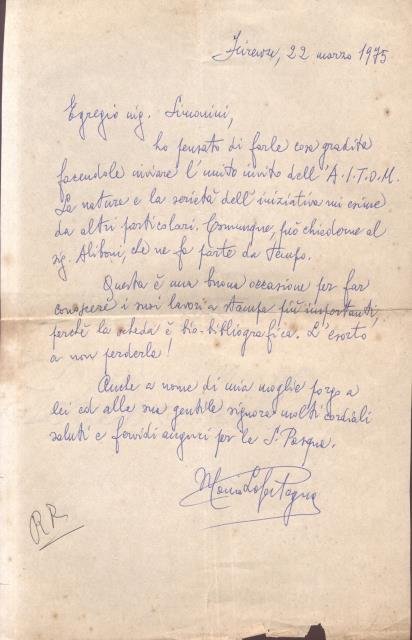 Firenze, 22 marzo 1975
Egregio sig. Simonini,
ho pensato di farle cosa gradita
facendole inviare l'unito invito dell'A.I.T.D.M.
La natura e la serietà dell'iniziativa mi esime
da altri particolari. Comunque, può chiederne al
sig. Aliboni, che ne fa parte da tempo.
Questa è una buona occasione per far
conoscere i suoi lavori a stampa più importanti,
perchè la scheda è bio-bibliografica. L'esorto
a non perderla!
Anche a nome di mia moglie porgo a
lei ed alla sua gentile signora molti cordiali
saluti e fervidi auguri per la S. Pasqua.
RR